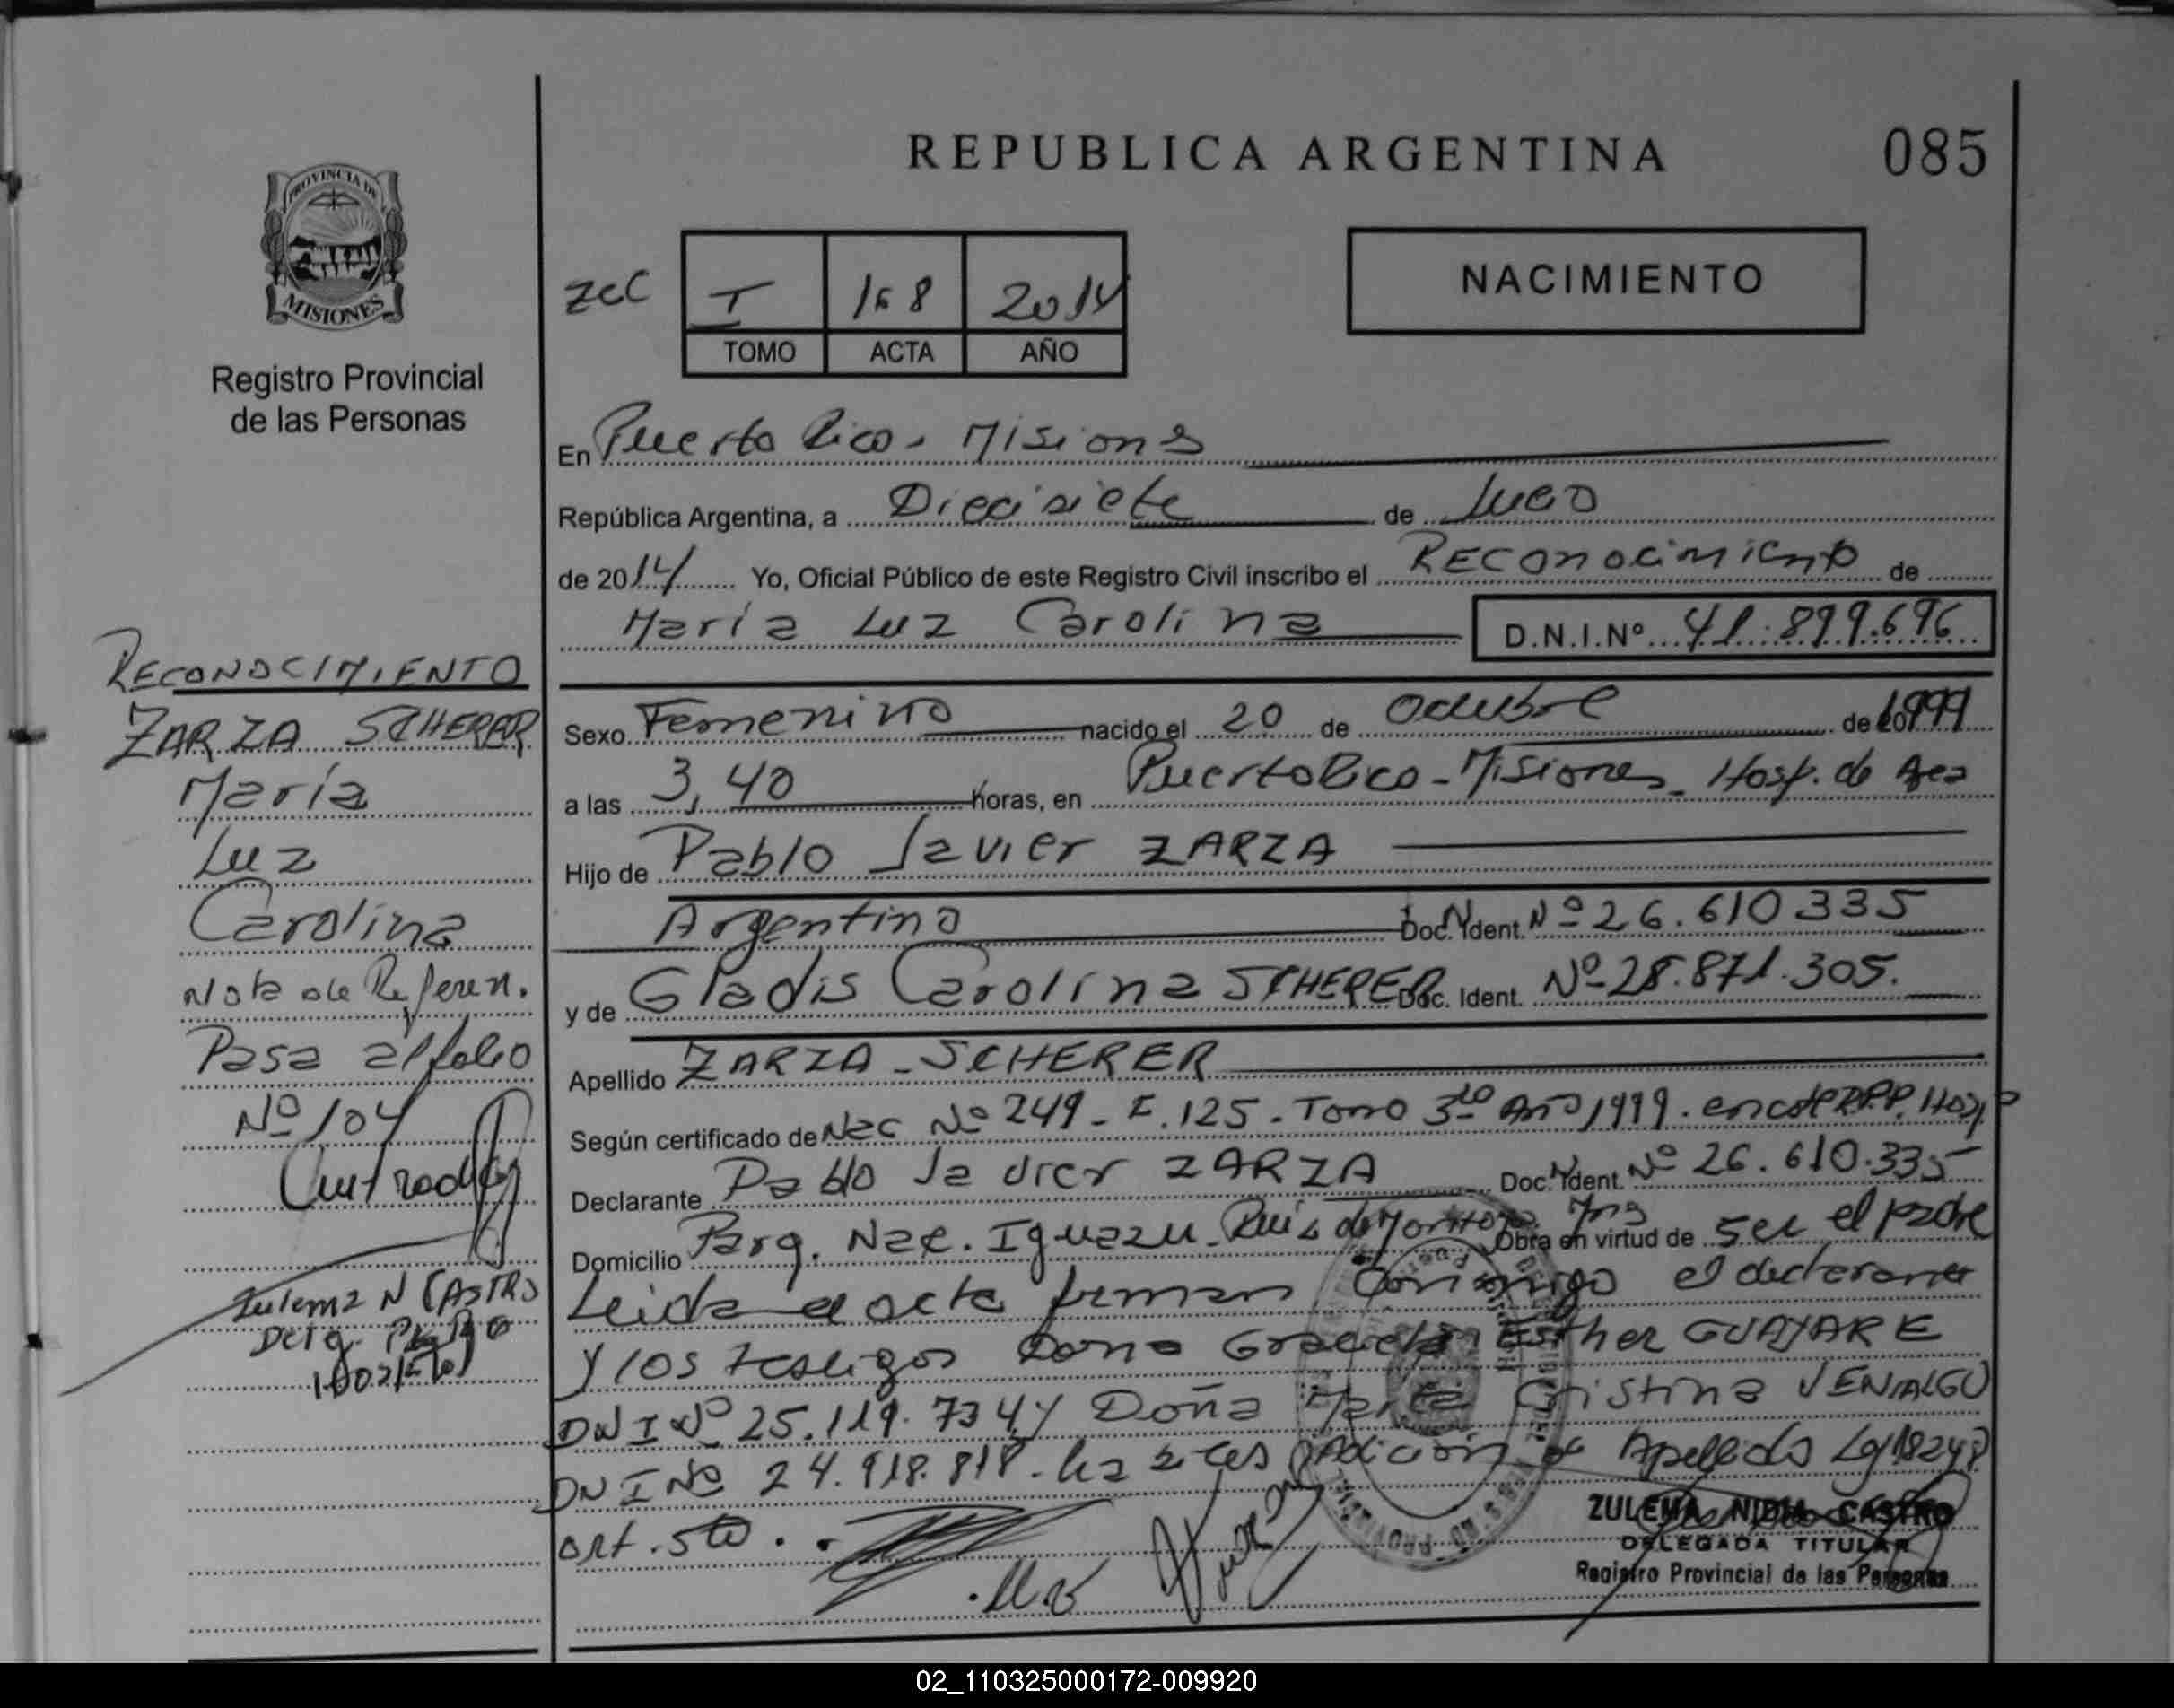 REPUBLICA ARGENTINA
085
PROVINCIA DE
MISIONES
Registro Provincial
de las Personas
I 168 2014
TOMO ACTA AÑO
NACIMIENTO
En Puerto Rico - Misiones
República Argentina, a Diecisiete de
de 2014 Yo, Oficial Público de este Registro Civil inscribo el RECONOCIMIENTO de
María Luz Carolina D.N.I.Nº 41.899.696
Sexo Femenino nacido el 20 de Octubre de 20 1999
a las 3,40 horas, en Puerto Rico - Misiones - Hosp. de
Hijo de Pablo Javier ZARZA
Argentino Doc. Ident. Nº 26.610335
y de Gladis Carolina SCHERER Doc. Ident. Nº 28.871.305.
Apellido ZARZA - SCHERER
Según certificado de Nac Nº 249 - F. 125 - Tomo 3ro Año 1999.
Declarante Pablo Javier ZARZA Doc. Ident. Nº 26.610.335
Domicilio Parq. Nac. Iguazu - Ruiz de Montoya. Mns Obra en virtud de ser el padre
Leida el acta firman conmigo el declarante
y los testigos Doña Graciela Esther GUAYARE
DNI Nº 25.119.734 y Doña María Cristina VENIALGO
DNI Nº 24.918.818 - Adición de Apellido Ley 18248
art. 5to.
ZULEMA NIDIA CASTRO
DELEGADA TITULAR
Registro Provincial de las Personas
RECONOCIMIENTO
ZARZA SCHERER
María
Luz
Carolina
Nota de Referen.
Pasa al folio
Nº 104
Zulema N CASTRO
02_110325000172-009920